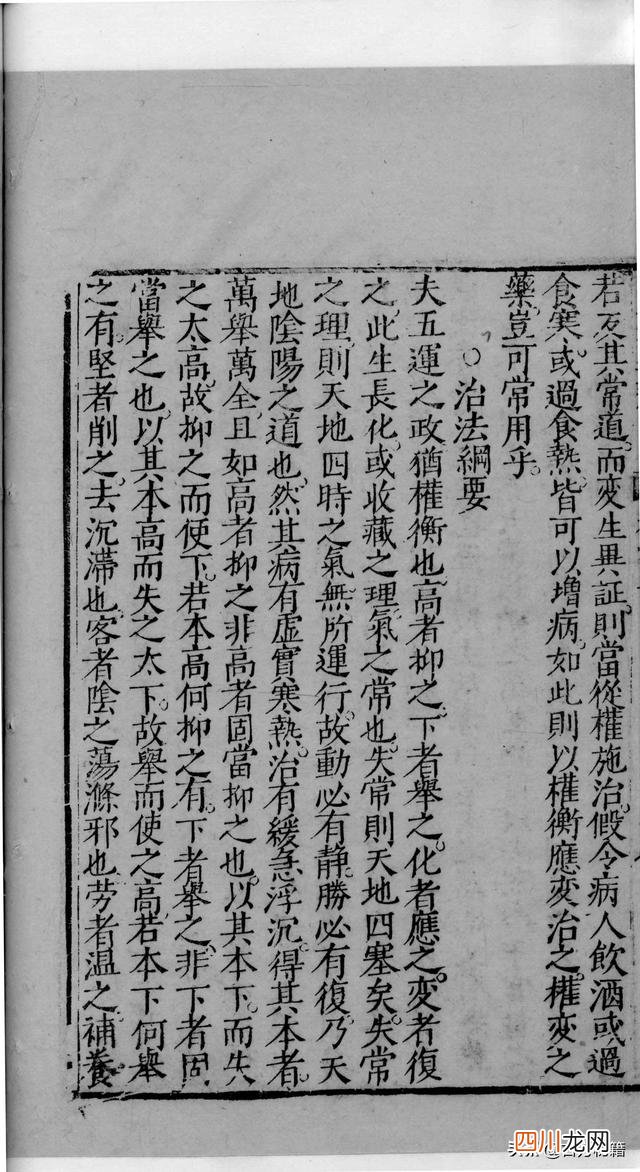 若反其常道而变生异証則當從權施治假令病人飲酒或過
食寒或過食熱皆可以增病如此則以權衡應変治之權変之
藥豈可常用乎
○治法綱要
夫五運之政猶權衡也高者抑之下者舉之化者應之変者復
之此生長化或收藏之理氣之常也失常則天地四塞矣失常
之理則天地四時之氣無所運行故動必有静勝必有復乃天
地陰陽之道也然其病有虛實寒熱治有緩急浮沉得其本者
萬舉萬全且如高者抑之非高者固當抑之也以其本下而失
之太高故抑之而使下若本高何抑之有下者舉之非下者固
當舉之也以其本高而失之太下故舉而使之高若本下何舉
之有堅者削之去沉滯也客者陰之蕩滌邪也劳者温之補養
四川龙网
头条